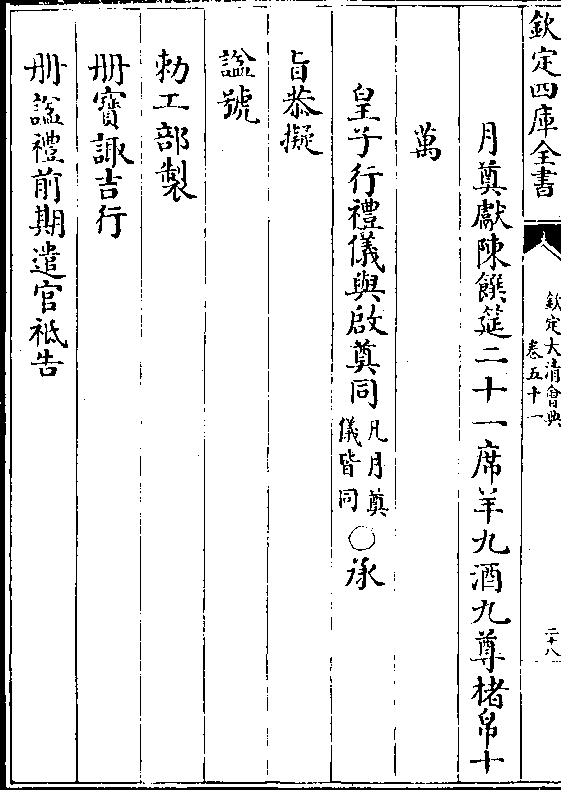 欽定四庫全書
欽定大清會典
卷五十一
二十八
月奠獻陳饌筵二十一席羊九酒九尊楮帛十
萬
皇子行禮儀與啟奠同凡月奠儀皆同○承
旨恭擬
諡號
勅工部製
冊寶諏吉行
冊諡禮前期遣官祗告